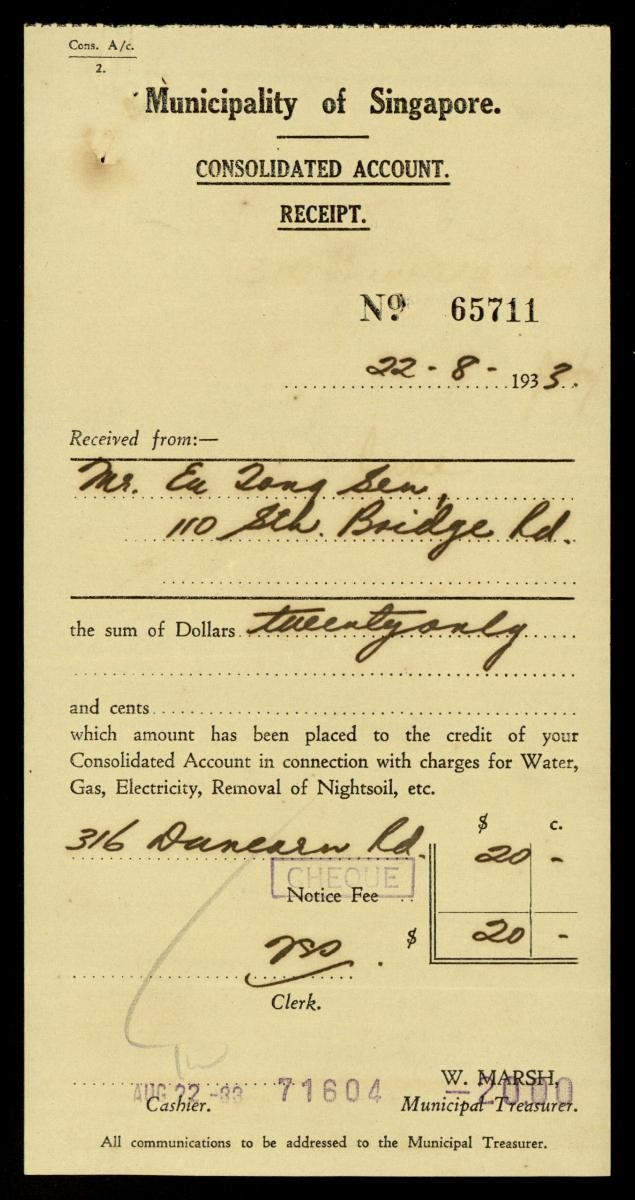 Cons. A/c.
2.
Municipality of Singapore.
CONSOLIDATED ACCOUNT.
RECEIPT.
No. 65711
22 - 8 - 1933.
Received from:—
Mr. Eu Tong Sen,
110 Sth. Bridge Rd.
the sum of Dollars twenty only
and cents
which amount has been placed to the credit of your
Consolidated Account in connection with charges for Water,
Gas, Electricity, Removal of Nightsoil, etc.
$ c.
316 Dunearn Rd. 20 -
CHEQUE
Notice Fee
$ 20 -
Clerk.
W. MARSH,
AUG 22 -33 71604 —2000
Cashier. Municipal Treasurer.
All communications to be addressed to the Municipal Treasurer.